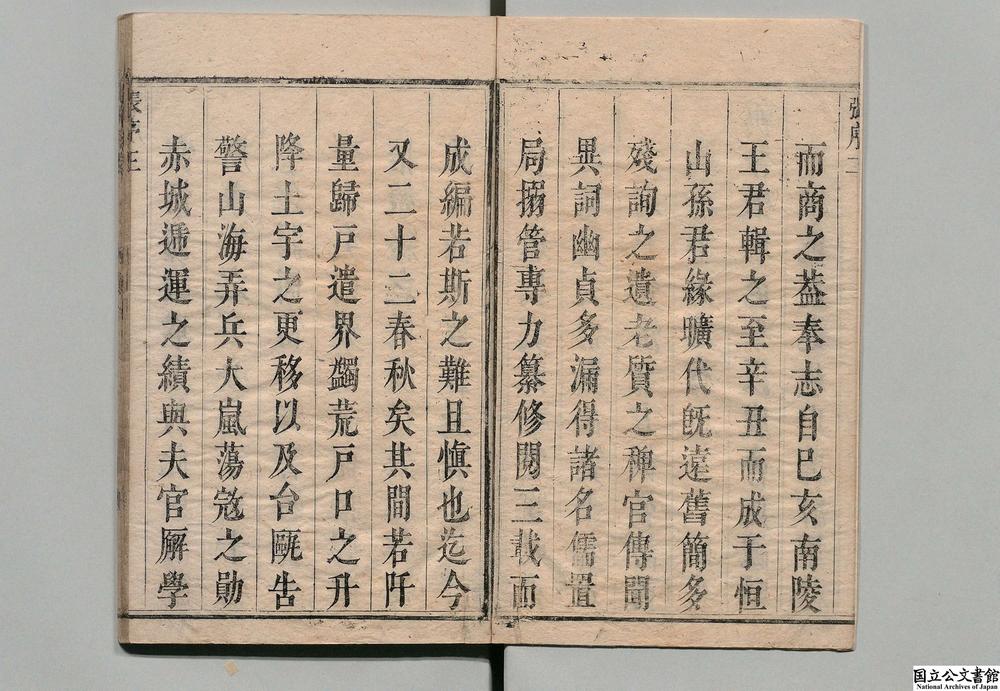 張序二
而商之蓋奉志自巳亥南陵
王君輯之至辛丑而成于恒
山孫君緣曠代旣遠舊簡多
殘詢之遺老質之稗官傳聞
異詞幽貞多漏得諸名儒置
局搦管專力纂修閱三載而
成編若斯之難且愼也迄今
又二十二春秋矣其間若阡
量歸戸遣界蠲荒戸口之升
降土宇之更移以及台甌告
警山海弄兵大嵐蕩宼之勛
赤城遞運之績與夫官廨學
張序三
国立公文書館
National Archives of Japan